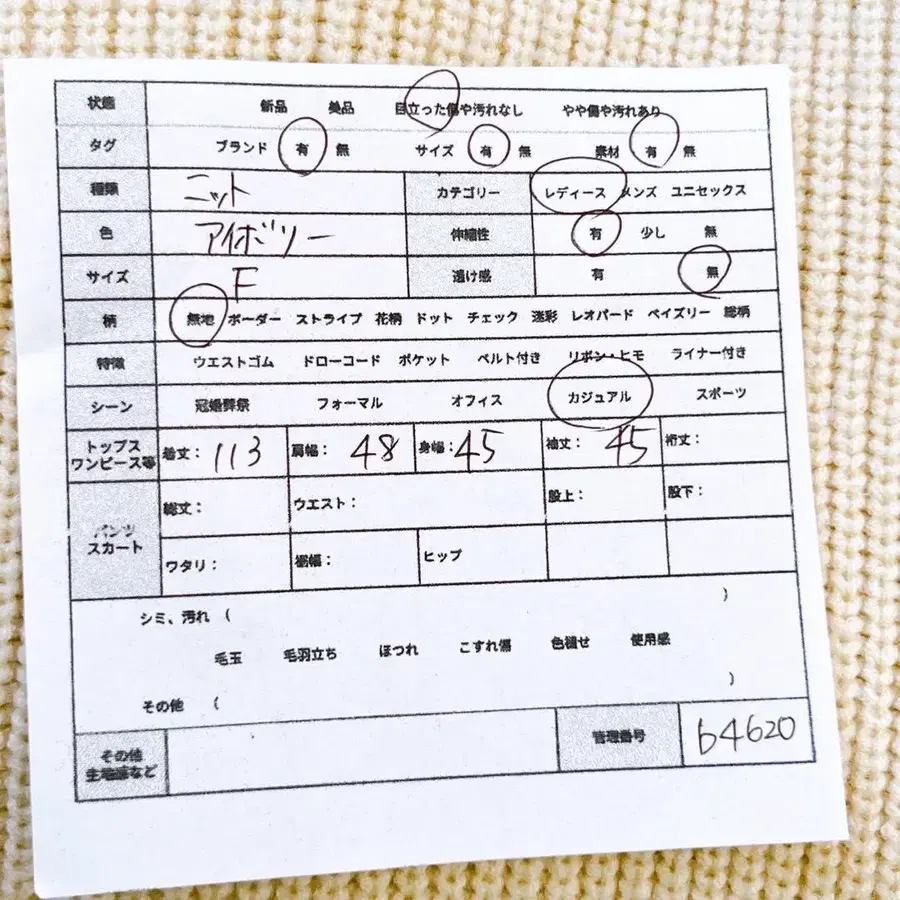 状態 新品 美品 目立った傷や汚れなし やや傷や汚れあり
タグ ブランド 有 無 サイズ 有 無 素材 有 無
種類 ニット カテゴリー レディース メンズ ユニセックス
色 アイボリー 伸縮性 有 少し 無
サイズ F 透け感 有 無
柄 無地 ボーダー ストライプ 花柄 ドット チェック 迷彩 レオパード ペイズリー 総柄
特徴 ウエストゴム ドローコード ポケット ベルト付き リボン・ヒモ ライナー付き
シーン 冠婚葬祭 フォーマル オフィス カジュアル スポーツ
トップス
ワンピース等 着丈: 113 肩幅: 48 身幅: 45 袖丈: 45 裄丈:
パンツ
スカート
総丈: ウエスト: 股上: 股下:
ワタリ: 裾幅: ヒップ
シミ、汚れ ( )
毛玉 毛羽立ち ほつれ こすれ傷 色褪せ 使用感
その他 ( )
その他
生地感など
管理番号 b4620